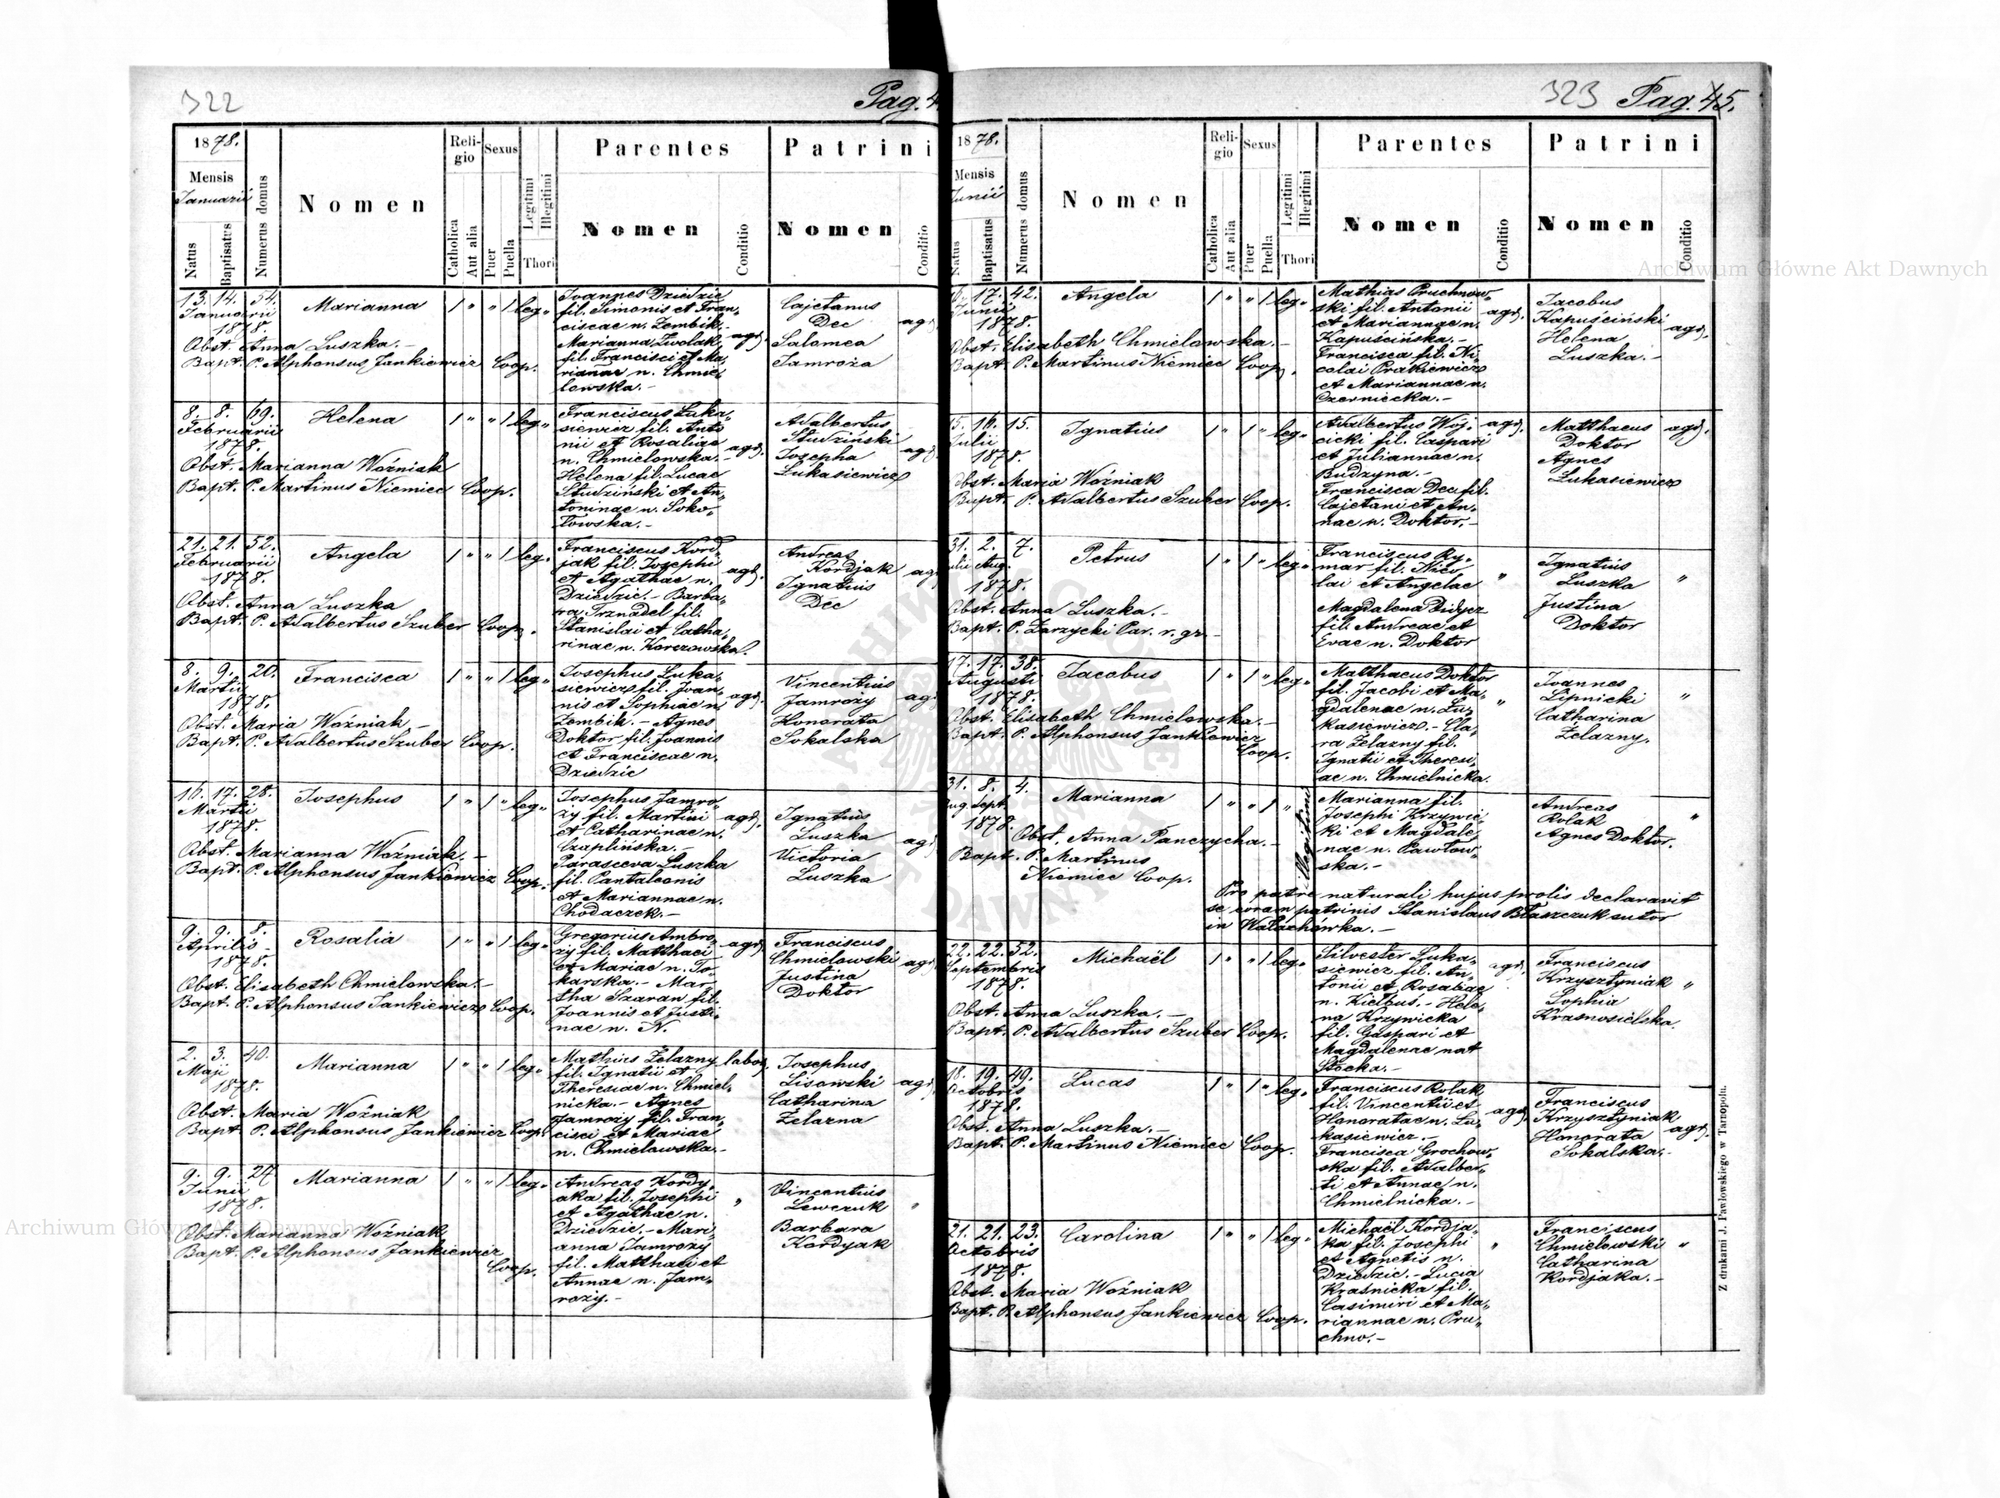 322
Pag. 4
1878.
Mensis
Januarii
Natus
Baptisatus
Numerus domus
Nomen
Religio
Catholica
Aut alia
Sexus
Puer
Puella
Legitimi
Illegitimi
Thori
Parentes
Nomen
Conditio
Patrini
Nomen
Conditio
13. 14. 54.
Januarii
1878.
Obst. Anna Luszka.-
Bapt. P. Alphonsus Jankiewicz Coop.
Marianna
1 " " 1 leg.
Joannes Dziedzic
fil. Simonis et Fran-
ciscae n. Zembik.-
Marianna Zwolak,
fil. Francisci et Ma-
riannae n. Chmie-
lowska.-
agr.
Cajetanus
Dec
Salomea
Jamroża
agr.
8. 8. 69.
Februarii
1878.
Obst. Marianna Woźniak
Bapt. P. Martinus Niemiec Coop.
Helena
1 " " 1 leg.
Franciscus Luka-
siewicz fil. Anto-
nii et Rosaliae
n. Chmielowska.
Helena fil. Lucae
Studziński et An-
toninae n. Soko-
łowska.-
agr.
Adalbertus
Studziński
Josepha
Łukasiewicz
agr.
21. 21. 52.
Februarii
1878.
Obst. Anna Luszka
Bapt. P. Adalbertus Szuber Coop.
Angela
1 " " 1 leg.
Franciscus Kord-
jak fil. Josephi
et Agathae n.
Dziedzic.- Barba-
ra Trznadel fil.
Stanislai et Catha-
rinae n. Korczowska.
agr.
Andreas
Kordjak
Ignatius
Dec
agr.
8. 9. 20.
Martii
1878.
Obst. Maria Woźniak.-
Bapt. P. Adalbertus Szuber Coop.
Francisca
1 " " 1 leg.
Josephus Luka-
siewicz fil. Joan-
nis et Sophiae n.
Zembik.- Agnes
Doktor fil. Joannis
et Franciscae n.
Dziedzic
agr.
Vincentius
Jamroży
Honorata
Sokalska
agr.
16. 17. 28.
Martii
1878.
Obst. Marianna Woźniak.-
Bapt. P. Alphonsus Jankiewicz Coop.
Josephus
1 " 1 " leg.
Josephus Jamro-
ży fil. Martini
et Catharinae n.
Czaplińska.-
Parasceva Luszka
fil. Pantaleonis
et Mariannae n.
Chodaczek.-
agr.
Ignatius
Luszka
Victoria
Luszka
agr.
9. 9. 8.
Aprilis
1878.
Obst. Elisabeth Chmielowska.-
Bapt. P. Alphonsus Jankiewicz Coop.
Rosalia
1 " " 1 leg.
Gregorius Ambro-
ży fil. Matthaei
et Mariae n. To-
karska.- Mar-
tha Szaran fil.
Joannis et Justi-
nae n. N.
agr.
Franciscus
Chmielowski
Justina
Doktor
agr.
2. 3. 40.
Maji
1878.
Obst. Maria Woźniak
Bapt. P. Alphonsus Jankiewicz Coop.
Marianna
1 " " 1 leg.
Mathias Żelazny
fil. Ignatii et
Theresiae n. Chmiel-
nicka.- Agnes
Jamroży fil. Fran-
cisci et Mariae
n. Chmielowska.-
labor.
Josephus
Lisowski
Catharina
Żelazna
agr.
9. 9. 27.
Junii
1878.
Obst. Marianna Woźniak
Bapt. P. Alphonsus Jankiewicz
Coop.
Marianna
1 " " 1 leg.
Andreas Kordy-
aka fil. Josephi
et Agathae n.
Dziedzic.- Mari-
anna Jamroży
fil. Matthaei et
Annae n. Jam-
roży.-
"
Vincentius
Lewczuk
Barbara
Kordyak
"
323 Pag. 45.
1878.
Mensis
Junii
Natus
Baptisatus
Numerus domus
Nomen
Religio
Catholica
Aut alia
Sexus
Puer
Puella
Legitimi
Illegitimi
Thori
Parentes
Nomen
Conditio
Patrini
Nomen
Conditio
17. 42.
Junii
1878.
Obst. Elisabeth Chmielowska.-
Bapt. P. Martinus Niemiec Coop.
Angela
1 " " 1 leg.
Mathias Pruchnow-
ski fil. Antonii
et Mariannae n.
Kapuścińska.-
Francisca fil. Ni-
colai Prakiewicz
et Mariannae n.
Czerniecka.-
agr.
Jacobus
Kapuściński
Helena
Luszka.-
agr.
15. 16. 15.
Julii
1878.
Obst. Maria Woźniak
Bapt. P. Adalbertus Szuber Coop.
Ignatius
1 " 1 " leg.
Adalbertus Wój-
cicki fil. Caspari
et Juliannae n.
Budzyna.-
Francisca Dec fil.
Cajetani et An-
nae n. Doktor.-
agr.
Matthaeus
Doktor
Agnes
Lukasiewicz
agr.
31. 2. 7.
Julii Aug.
1878.
Obst. Anna Luszka.-
Bapt. P. Zarzycki Par. r. gr.-
Petrus
1 " 1 " leg.
Franciscus Ry-
mar fil. Nico-
lai et Angelae
Magdalena Didycz
fil. Andreae et
Evae n. Doktor
"
Ignatius
Luszka
Justina
Doktor
"
17. 17. 38.
Augusti
1878.
Obst. Elisabeth Chmielowska.-
Bapt. P. Alphonsus Jankiewicz
Coop.
Jacobus
1 " 1 " leg.
Matthaeus Doktor
fil. Jacobi et Ma-
gdalenae n. Lu-
kasiewicz.- Cla-
ra Żelazny fil.
Ignatii et Theresi-
ae n. Chmielnicka.
"
Joannes
Lipnicki
Catharina
Żelazny.
"
31. 8. 4.
Aug. Sept.
1878.
Obst. Anna Panczycha.-
Bapt. P. Martinus
Niemiec Coop.
Marianna
1 " " 1 "
Illegitimi
Marianna fil.
Josephi Krzywic-
ki et Magdale-
nae n. Pawłow-
ska.-
Andreas
Rolak
Agnes Doktor.
"
Pro patre naturali hujus prolis declaravit
se coram patrinis Stanislaus Błaszczuk sutor
in Wałachówka.-
22. 22. 52.
Septembris
1878.
Obst. Anna Luszka.-
Bapt. P. Adalbertus Szuber Coop.
Michaël
1 " " 1 leg.
Silvester Luka-
siewicz fil. An-
tonii et Rosaliae
n. Kiełbus.- Hele-
na Krzywicka
fil. Gaspari et
Magdalenae nat
Stocka.-
agr.
Franciscus
Krzysztyniak
Sophia
Krasnosielska
"
18. 19. 49.
Octobris
1878.
Obst. Anna Luszka.-
Bapt. P. Martinus Niemiec Coop.
Lucas
1 " 1 " leg.
Franciscus Rolak
fil. Vincentii et
Honoratae n. Lu-
kasiewicz.-
Francisca Grochow-
ska fil. Adalber-
ti et Annae n.
Chmielnicka.-
agr.
Franciscus
Krzysztyniak
Honorata
Sokalska.-
agr.
21. 21. 23.
Octobris
1878.
Obst. Maria Woźniak
Bapt. P. Alphonsus Jankiewicz Coop.
Carolina
1 " " 1 leg.
Michaël Kordja-
ka fil. Josephi
et Agnetis n.
Dziedzic.- Lucia
Kraśnicka fil.
Casimiri et Ma-
riannae n. Pru-
chno.-
"
Franciscus
Chmielowski
Catharina
Kordjaka.-
"
Z drukarni J. Pawłowskiego w Tarnopolu.
Archiwum Główne Akt Dawnych
Archiwum Główne Akt Dawnych
ARCHIWUM GŁÓWNE AKT DAWNYCH